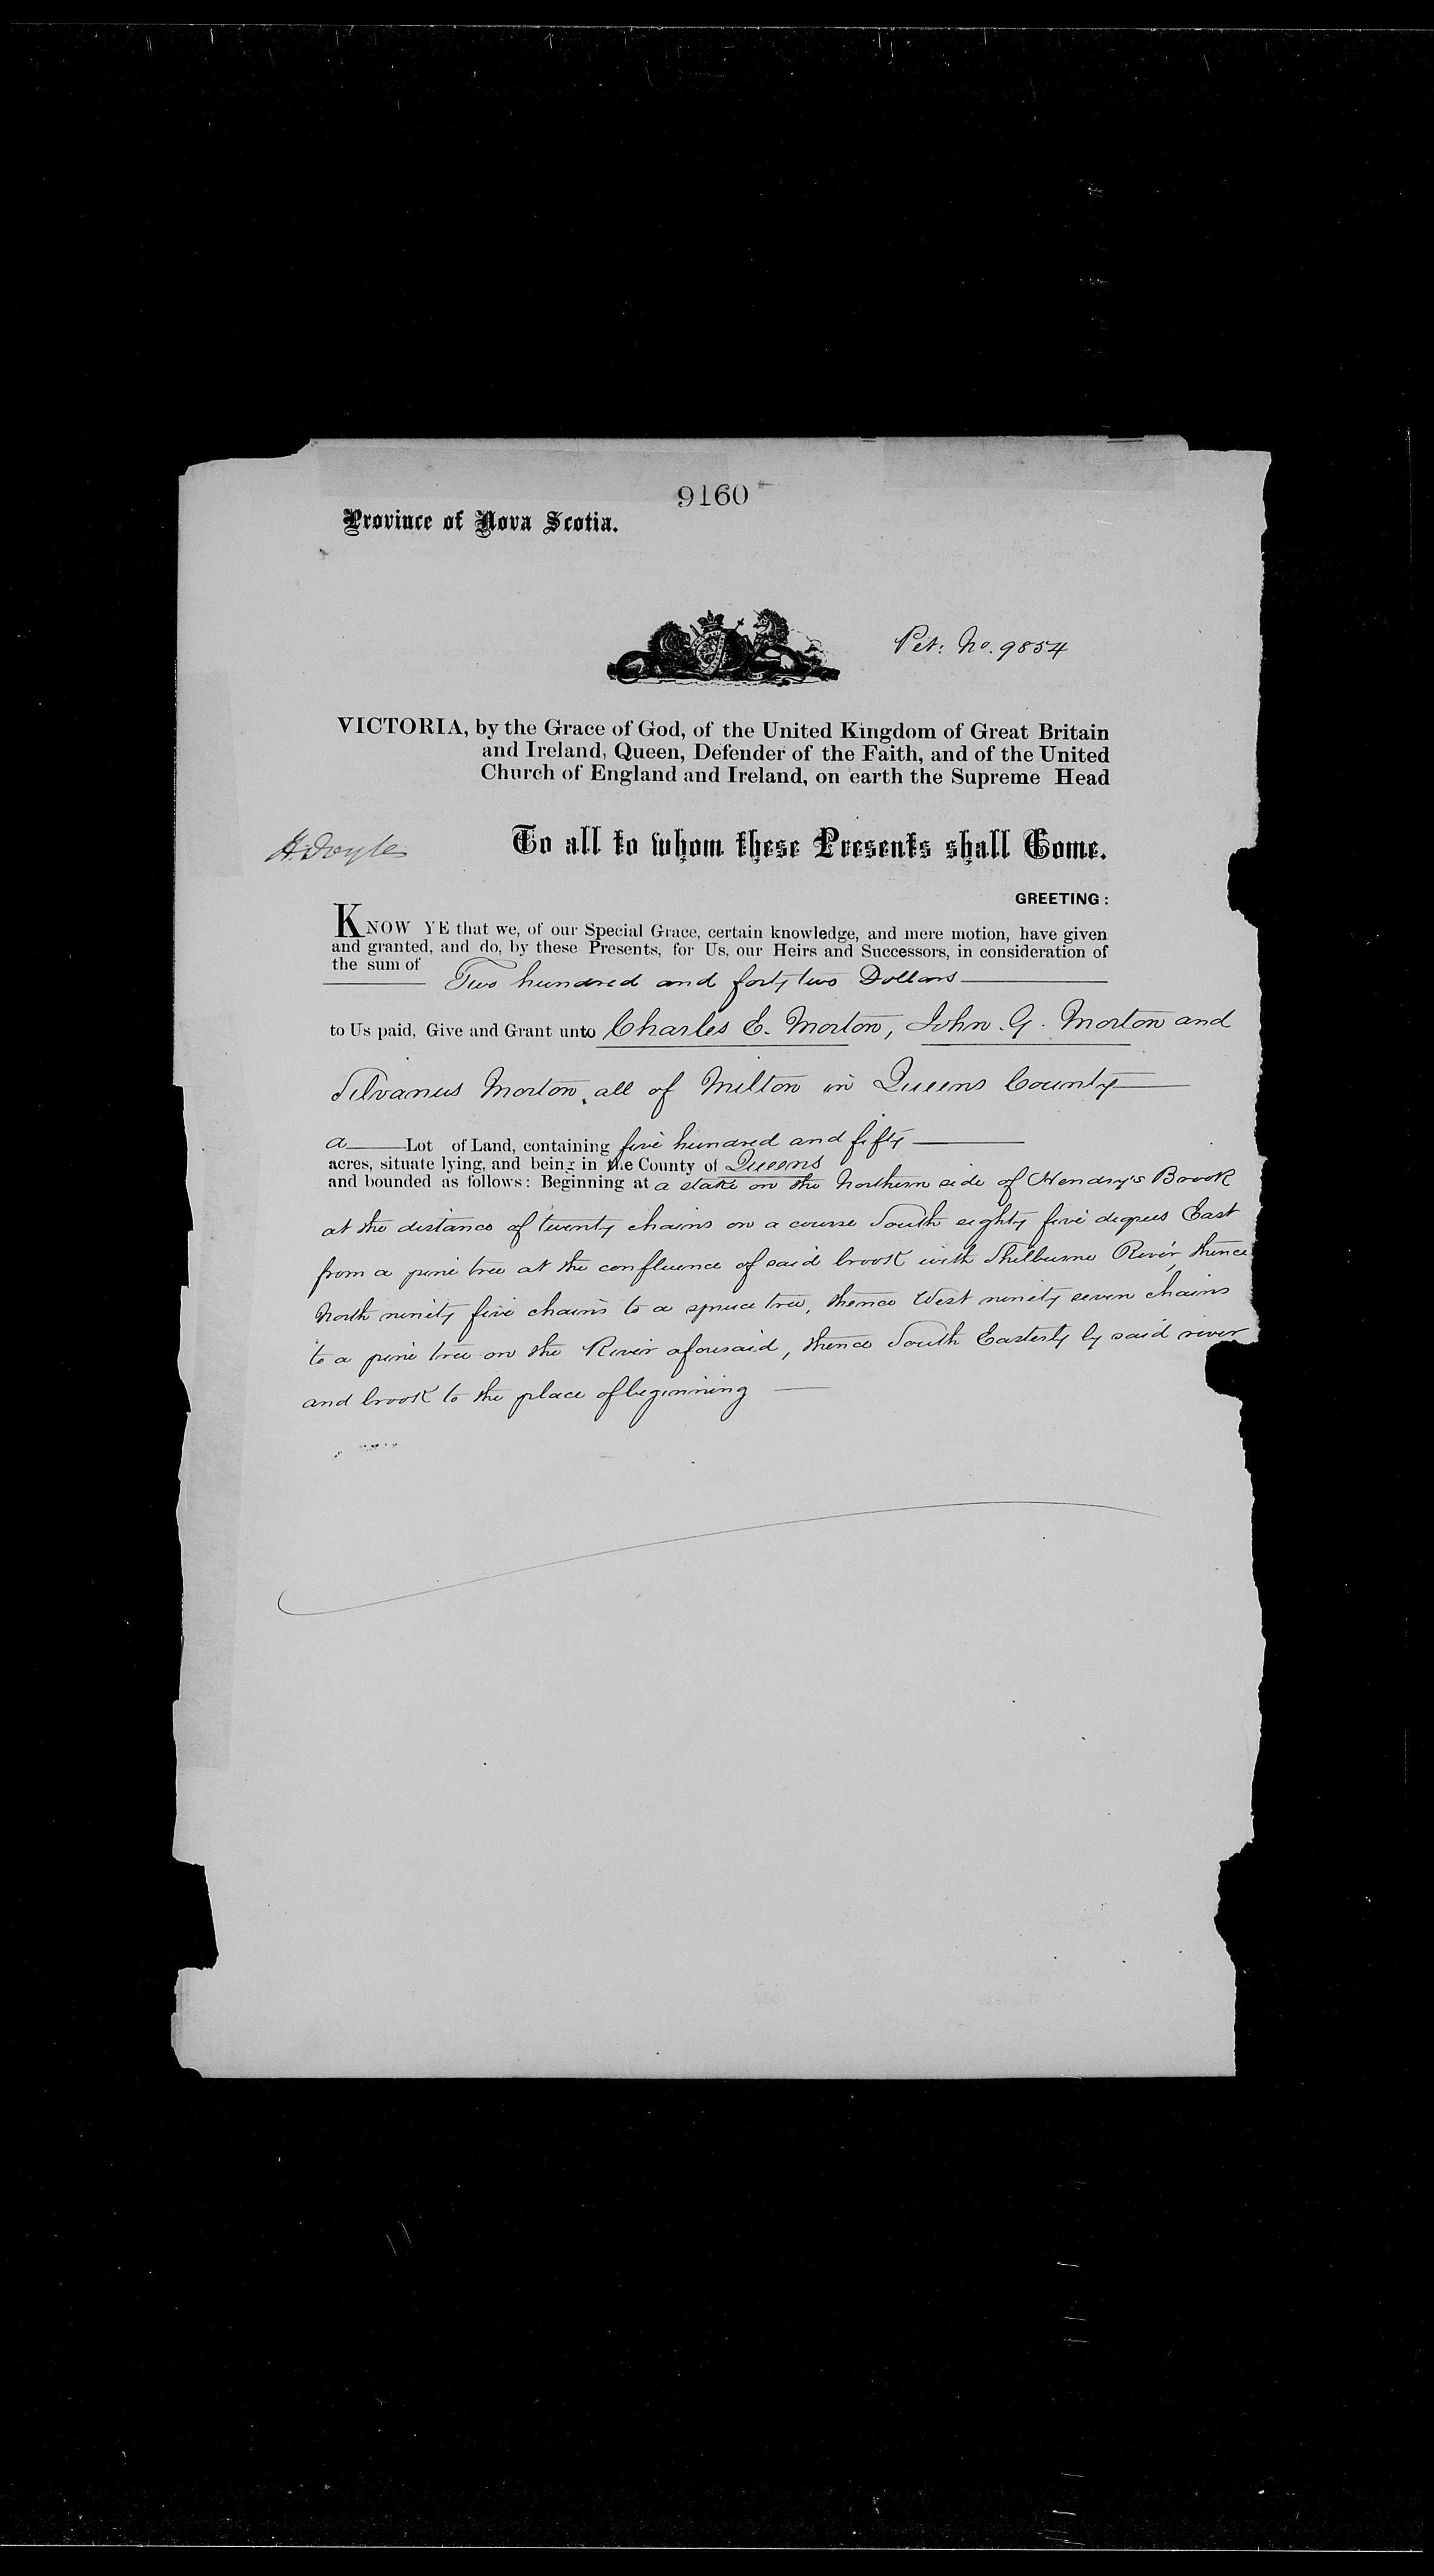 9160
Province of Nova Scotia.
Pet: No. 9854
VICTORIA, by the Grace of God, of the United Kingdom of Great Britain
and Ireland, Queen, Defender of the Faith, and of the United
Church of England and Ireland, on earth the Supreme Head
H. Doyle
To all to whom these Presents shall Come.
GREETING:
KNOW YE that we, of our Special Grace, certain knowledge, and mere motion, have given
and granted, and do, by these Presents, for Us, our Heirs and Successors, in consideration of
the sum of Two hundred and forty two Dollars
to Us paid, Give and Grant unto Charles E. Morton, John. G. Morton and
Silvanus Morton, all of Milton in Queens County
a Lot of Land, containing five hundred and fifty
acres, situate lying, and being in the County of Queens
and bounded as follows: Beginning at a stake on the Northern side of Hendry's Brook
at the distance of twenty chains on a course South eighty five degrees East
from a pine tree at the confluence of said brook with Shelburne River, thence
North ninety five chains to a spruce tree, thence West ninety seven chains
to a pine tree on the River aforesaid, thence South Easterly by said river
and brook to the place of beginning